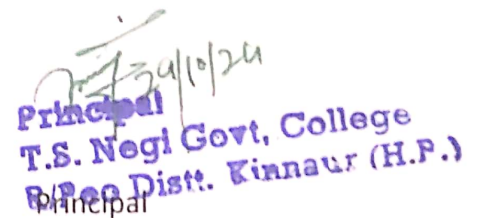 29/10/24
Principal
T.S. Negi Govt, College
R/Peo Distt. Kinnaur (H.P.)
Principal